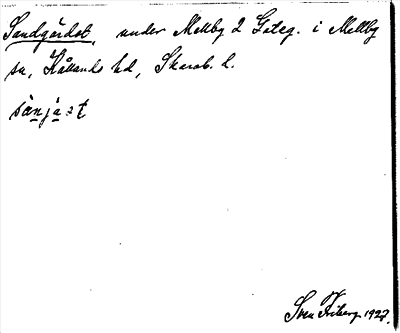 Sandgärdet, under Mellby 2 Göteg. i Mellby
sn, Kållands hd, Skarab. l.
sànjá:t
Sven Friberg 1927.